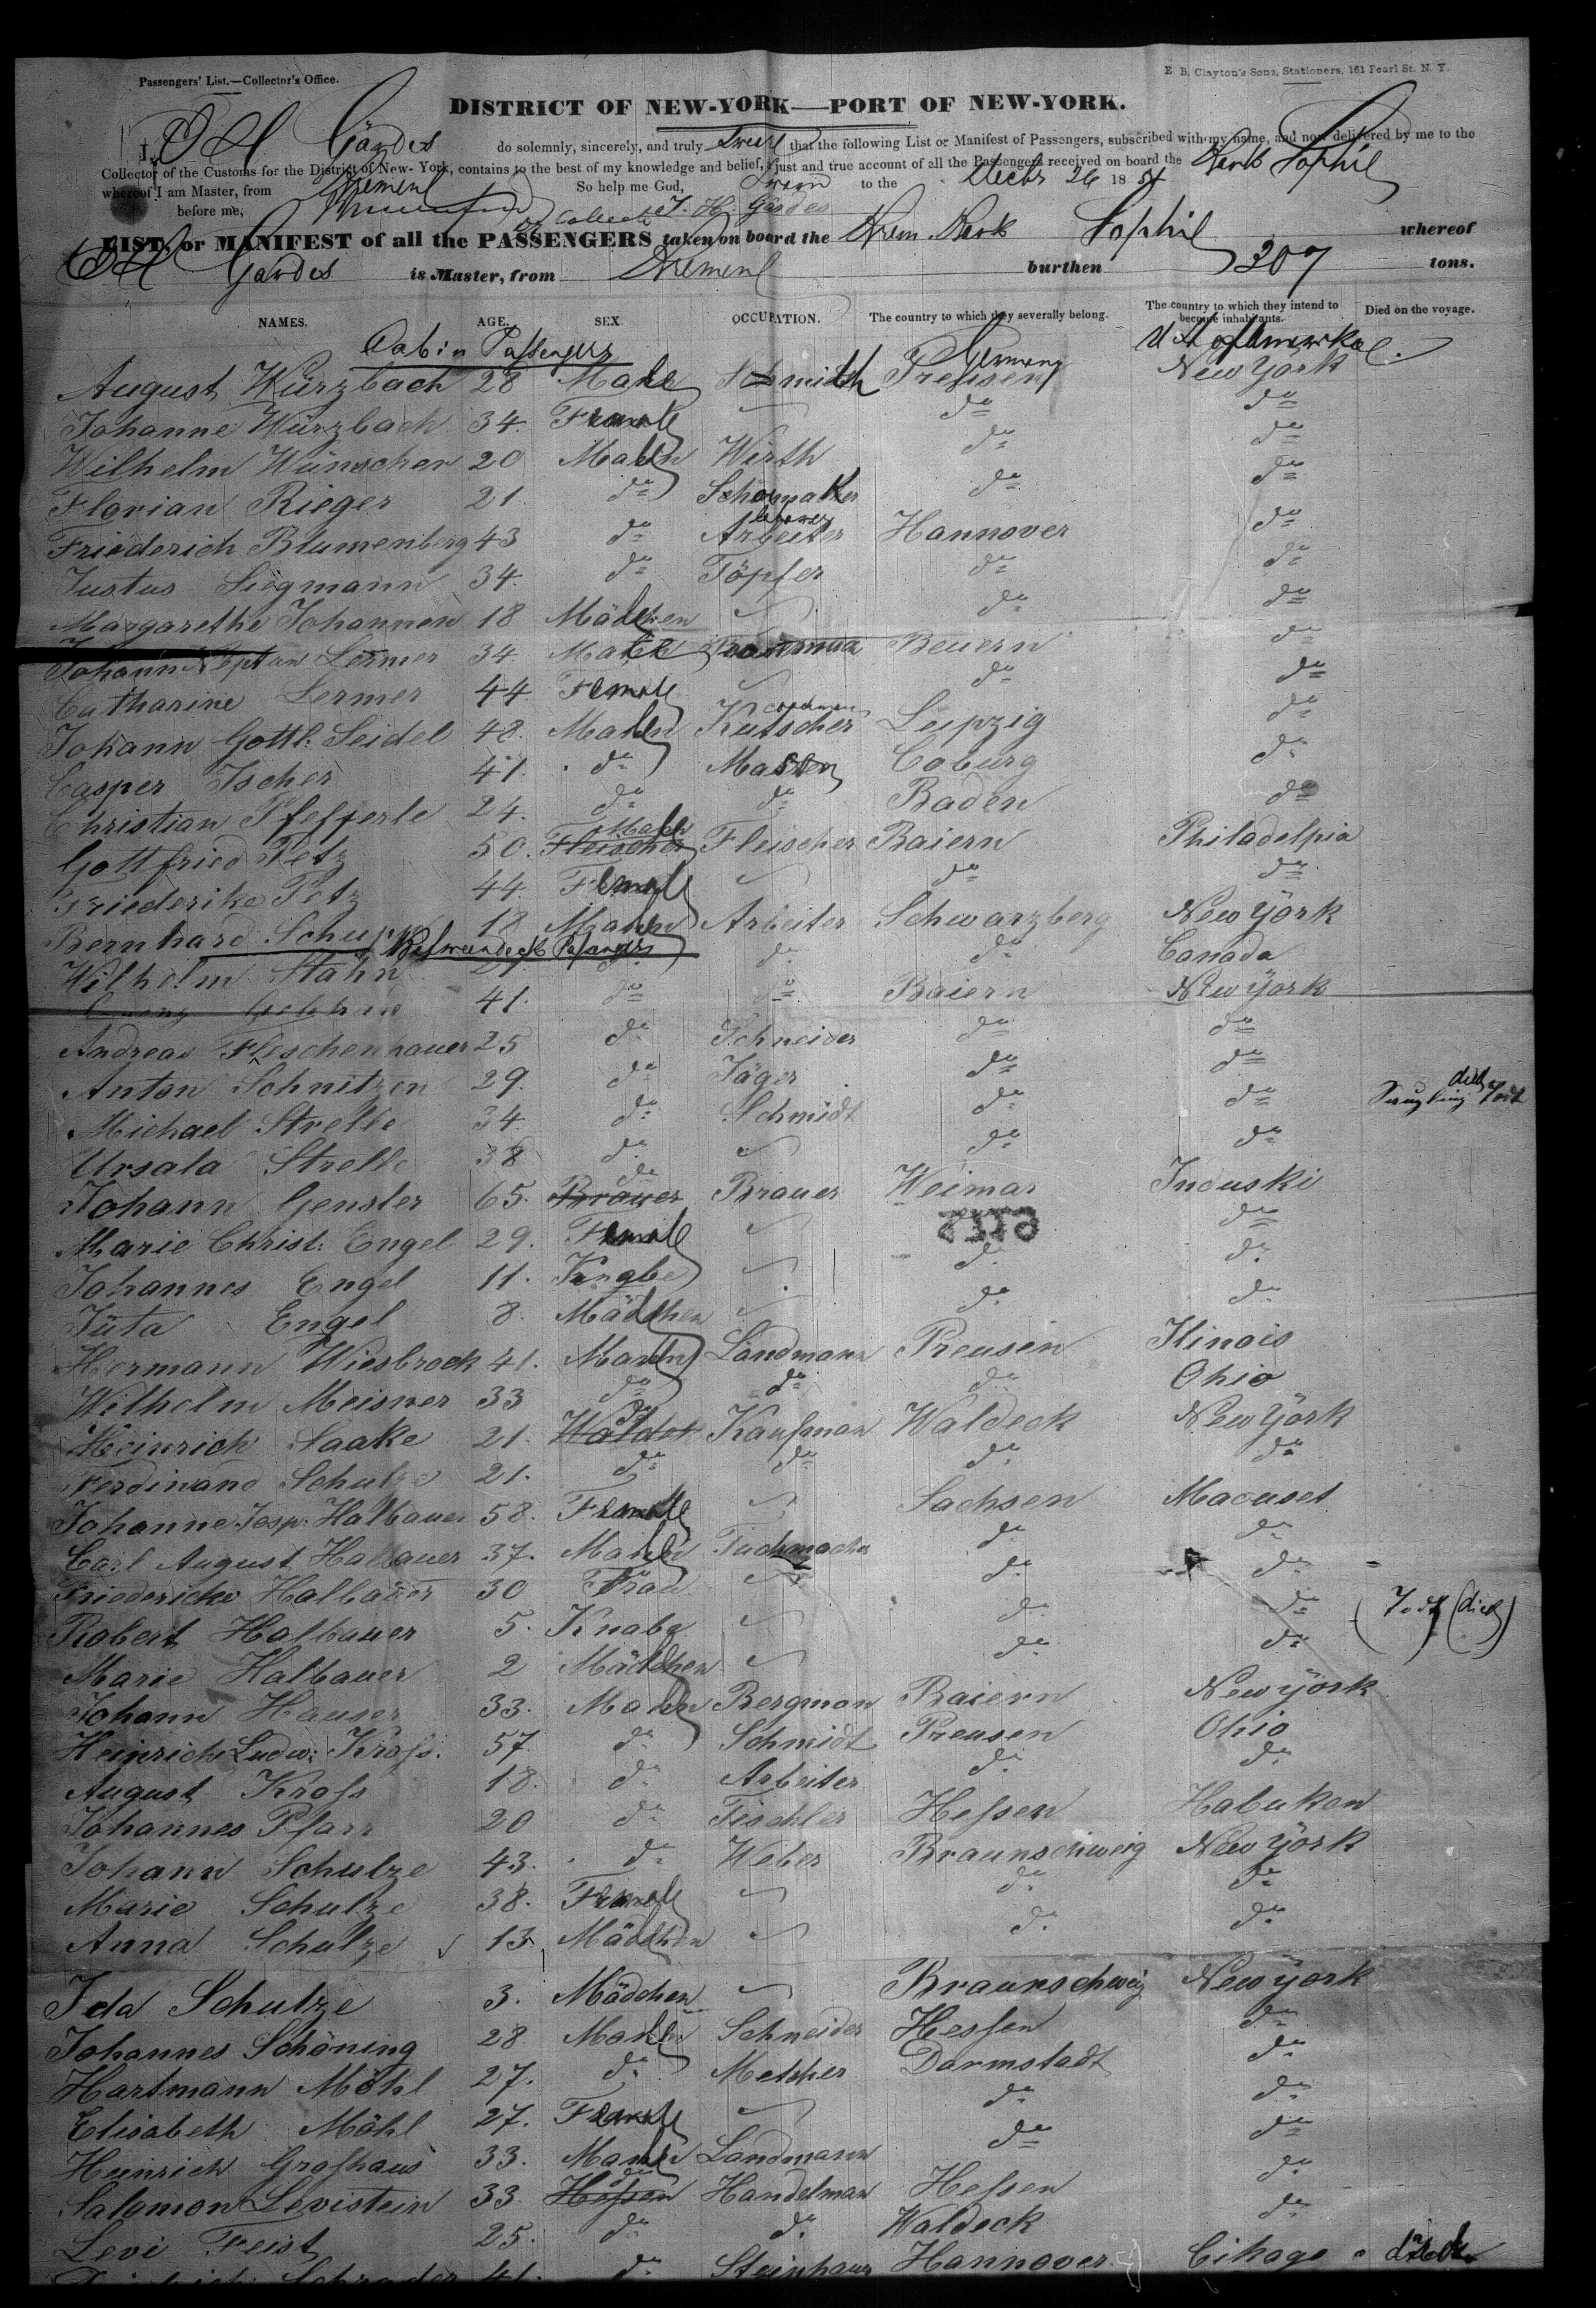 Passengers' List.—Collector's Office.
E. B. Clayton's Sons, Stationers, 161 Pearl St. N. Y.
DISTRICT OF NEW-YORK—PORT OF NEW-YORK.
I, Gärdes do solemnly, sincerely, and truly swear that the following List or Manifest of Passengers, subscribed with my name, and now delivered by me to the
Collector of the Customs for the District of New-York, contains to the best of my knowledge and belief, a just and true account of all the Passengers received on board the Bark Sophie
whereof I am Master, from Bremen So help me God,
Sworn to the Decbr 26 1854
before me, J. H. Gärdes
LIST or MANIFEST of all the PASSENGERS taken on board the Brem. Bark Sophie whereof
Gärdes is Master, from Bremen burthen 207 tons.
NAMES. AGE. SEX. OCCUPATION. The country to which they severally belong. The country to which they intend to become inhabitants. Died on the voyage.
Cabin Passengers Germany U St of Amerika
August Würzbach 28 Male Schmith Preusen New York
Johanne Würzbach 34. Female do do
Wilhelm Wünscher 20 Male Wirth do do
Florian Rieger 21. do Schomaker do do
Friederich Blumenberg 43 do Arbeiter labourer Hannover do
Justus Siegmann 34. do Töpfer do do
Margarethe Johannen 18 Mädchen do do
Johann Lermer 34. Male Beuern do
Catharine Lermer 44 Female do do
Johann Gottl: Seidel 48. Male Kutscher coachman Leipzig do
Casper Ischer 41. do Coburg do
Christian Pfefferle 24. do do Baden do
Gottfried Petz 50. Fleischer Male Fleischer Baiern Philadelpia
Friederike Petz 44. Female do do
Bernhard Schupp 18 Male Arbeiter Schwarzberg New York
Betweendeck Passengers
Wilhelm Stahn do do do Canada
41. do do Baiern New York
Andreas Fleschenhauer 25 do Schneider do do
Anton Schnitzen 29. do Jäger do do
Michael Strelle 34. do Schmidt do do Saugling Todt died
Ursala Strelle 38 do do do
Johann Gensler 65. Brauer do Brauer Weimar Induski
Marie Christ: Engel 29. Female do
Johannes Engel 11. Knabe do do
Jüta Engel 8. Mädchen do do
Hermann Wiesbrock 41. Male Landmann Preusen Ilinois
Wilhelm Meisner 33 do do do Ohio
Heinrich Saake 21. do Kaufman Waldeck New York
Ferdinand Schulze 21. do do do do
Johanne Josp. Halbauer 58. Female Sachsen Macuset
Carl August Halbauer 37. Male Tuchmacher do do
Friedericke Halbauer 30 Frau do do
Robert Halbauer 5. Knabe do do Todt (died)
Marie Halbauer 2 Mädchen do do
Johann Hauser 33. Male Bergman Baiern New York
Heinrich Ludw: Kroſs. 57. do Schmidt Preusen Ohio
August Kroſs 18. do Arbeiter do do
Johannes Pfarr 20 do Tischler Heſsen Habuken
Johann Schulze 43. do Weber Braunschweig New York
Marie Schulze 38. Female do do
Anna Schulze 13. Mädchen do do
Ida Schulze 3. Mädchen Braunschweig New York
Johannes Schöning 28 Male Schneider Hesſen do
Hartmann Möhl 27. do Metcher Darmstadt do
Elisabeth Möhl 27. Female do do
Heinrich Groſshaus 33. Male Landmann do do
Salomon Levistein 33. Heſsen do Handelman Heſsen do
Levi Feist 25. do do Waldeck do
Schrader 41. do Steinhaur Hannover Cikago